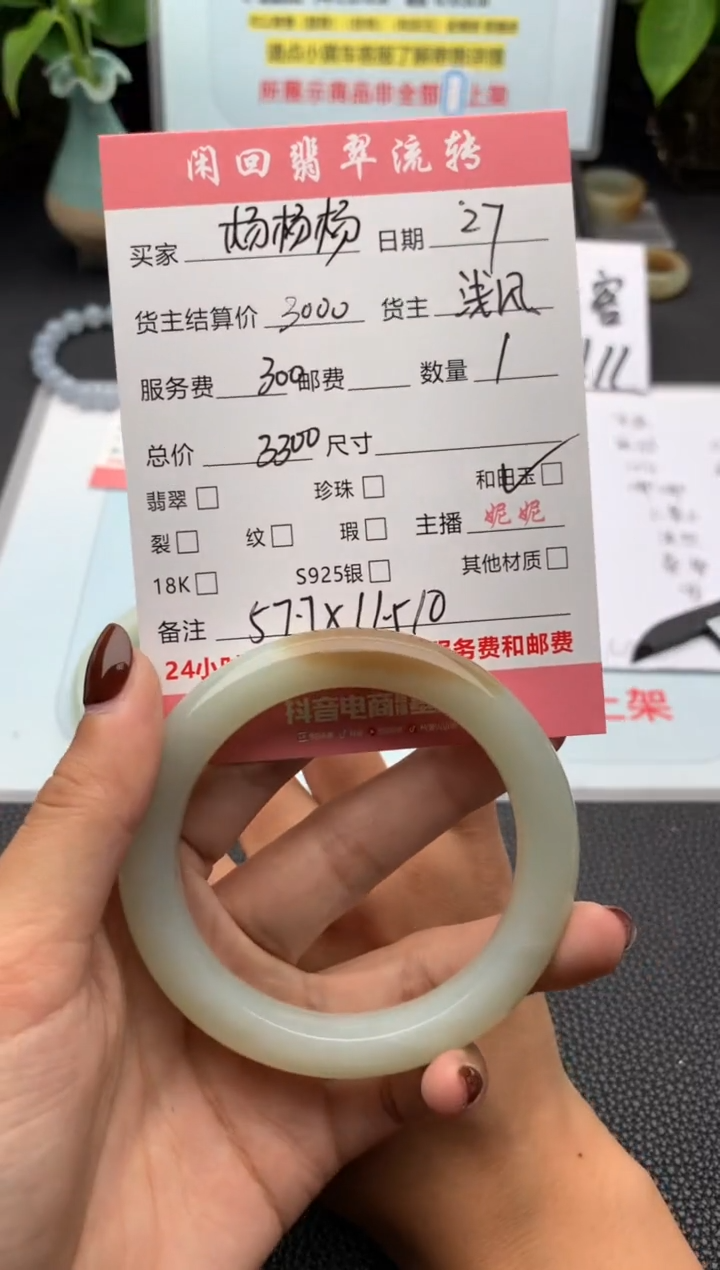 所展示商品非全部上架
闲回翡翠流转
买家 杨杨杨 日期 27
货主结算价 3000 货主 浅风
服务费 300 邮费 数量 1
总价 3300 尺寸
翡翠 珍珠 和田玉
裂 纹 瑕 主播 妮妮
18K S925银 其他材质
备注 57.7×11.5/10
24小 服务费和邮费
抖音电商
上架
客